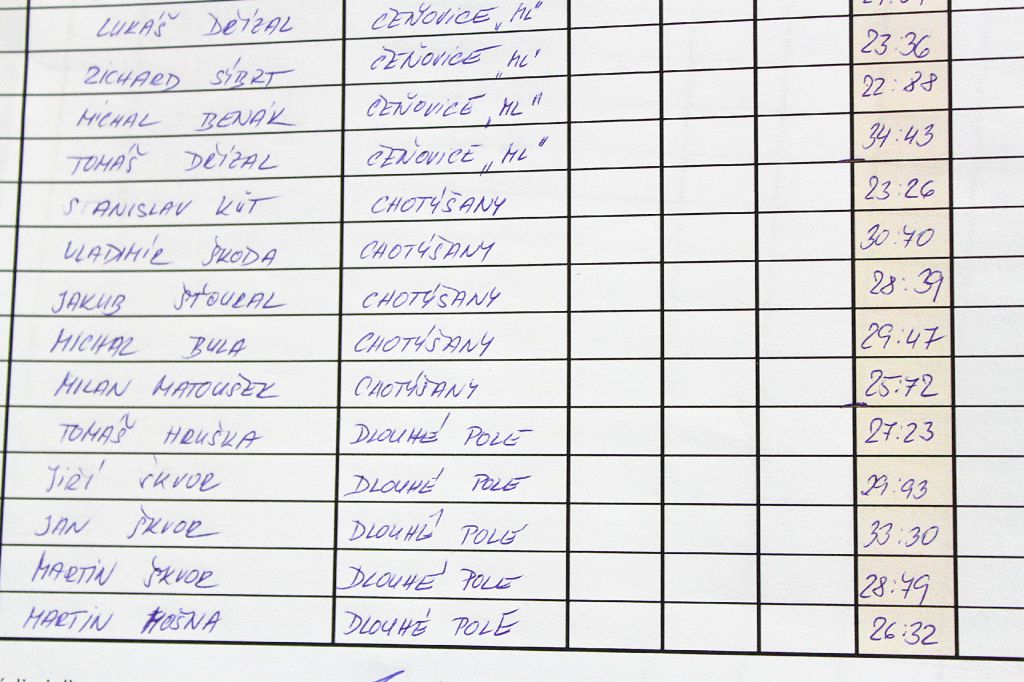 LUKÁŠ DŘÍZAL ČEŇOVICE „ML"
RICHARD SÍBRT ČEŇOVICE „ML" 23:36
MICHAL BENÁK ČEŇOVICE „ML" 22:88
TOMÁŠ DŘÍZAL ČEŇOVICE „ML" 34:43
STANISLAV KŮT CHOTÝŠANY 23:26
VLADIMÍR ŠKODA CHOTÝŠANY 30:70
JAKUB ŠŤOURAL CHOTÝŠANY 28:39
MICHAL BULA CHOTÝŠANY 29:47
MILAN MATOUŠEK CHOTÝŠANY 25:72
TOMÁŠ HRUŠKA DLOUHÉ POLE 27:23
JIŘÍ ŠKVOR DLOUHÉ POLE 29:93
JAN ŠKVOR DLOUHÉ POLE 33:30
MARTIN ŠKVOR DLOUHÉ POLE 28:79
MARTIN HOŠNA DLOUHÉ POLE 26:32